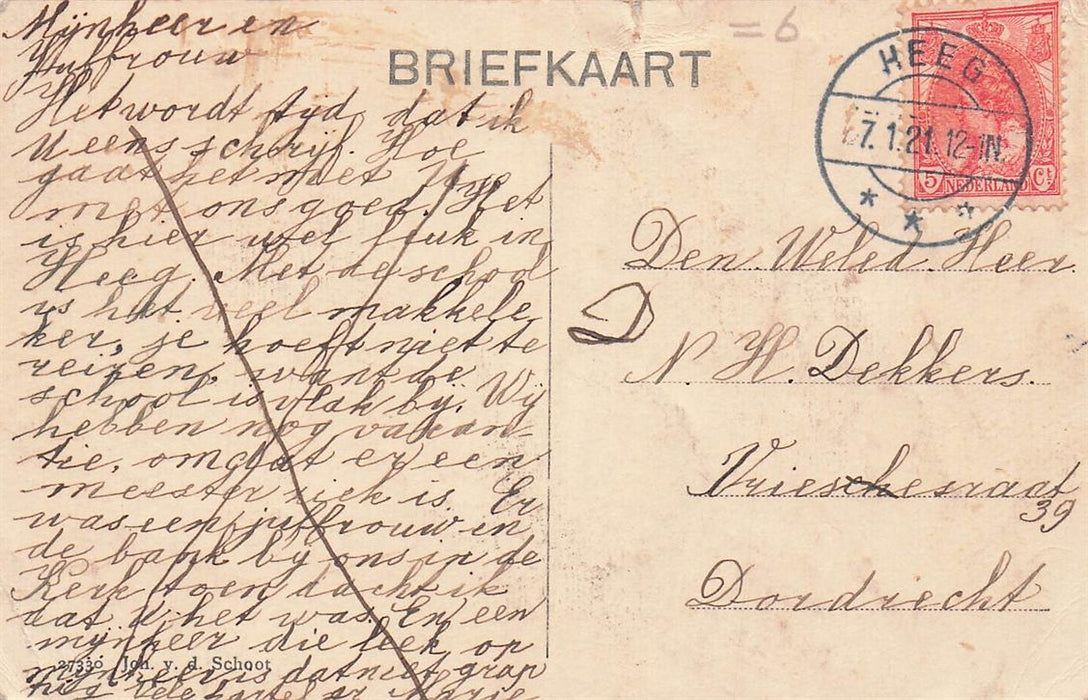 Mijnheer en
Juffrouw
Het wordt tyd, dat ik
U eens schrijf. Hoe
gaat het met U, ge
met ons goed. Het
is hier wel leuk in
Heeg. Met de school
is het veel makkele
ker, je hoeft niet te
reizen, want de
school is vlak by. Wij
hebben nog vakan-
tie, omdat er een
meester ziek is. Er
was een juffrouw in
de bank by ons in de
Kerk toen dacht ik
dat U het was. En een
mijnheer die leek op
mijnheer is dat niet grap
pig
BRIEFKAART
=6
HEEG
7.1.21.12-1N.
5 NEDERLAND Ct
Den Weled. Heer.
N. H. Dekkers.
Vriesestraat
39
Dordrecht
27330 Joh. v. d. Schoot